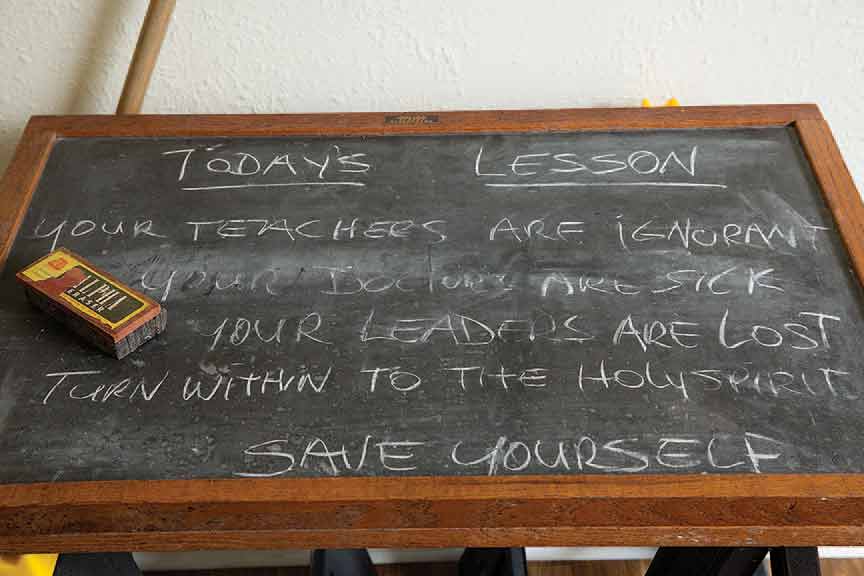 TODAY'S LESSON
YOUR TEACHERS ARE IGNORANT
YOUR DOCTORS ARE SICK
YOUR LEADERS ARE LOST
TURN WITHIN TO THE HOLY SPIRIT
SAVE YOURSELF
ALPHA
ERASER